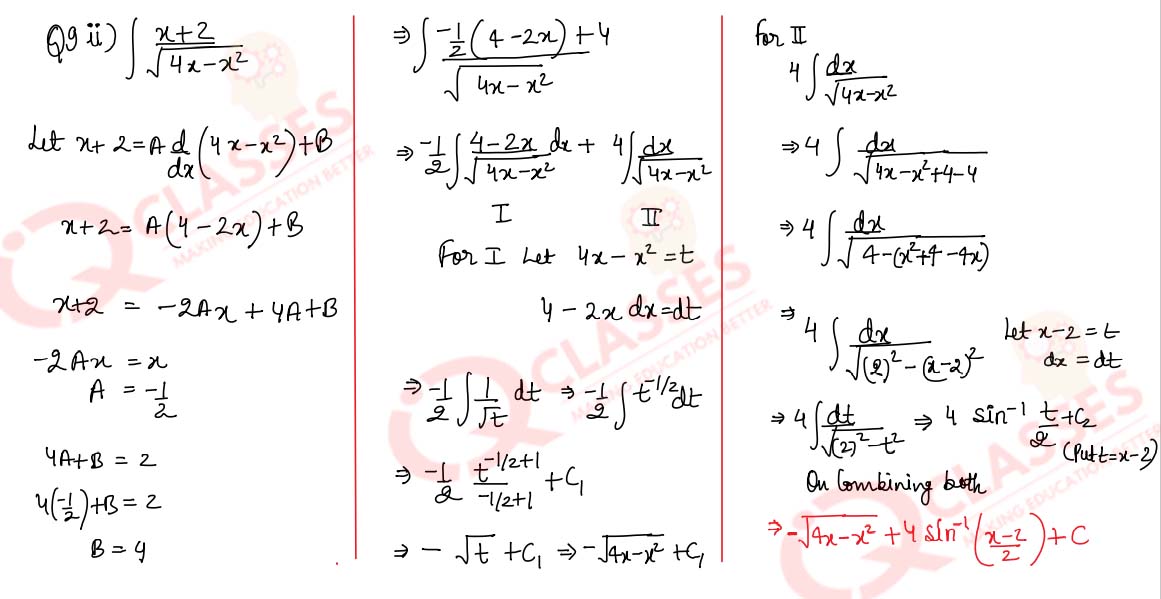 Q9 ii) ∫ x+2 / √(4x-x²)
Let x+2 = A d/dx (4x-x²)+B
x+2 = A(4-2x)+B
x+2 = -2Ax + 4A+B
-2Ax = x
A = -1/2
4A+B = 2
4(-1/2)+B = 2
B = 4
⇒ ∫ -1/2 (4-2x) + 4 / √(4x-x²)
⇒ -1/2 ∫ 4-2x / √(4x-x²) dx + 4∫ dx / √(4x-x²)
I II
For I Let 4x-x² = t
4-2x dx = dt
⇒ -1/2 ∫ 1/√t dt ⇒ -1/2 ∫ t^(-1/2) dt
⇒ -1/2 t^(-1/2+1) / -1/2+1 + C₁
⇒ - √t + C₁ ⇒ -√(4x-x²) + C₁
For II
4 ∫ dx / √(4x-x²)
⇒ 4 ∫ dx / √(4x-x²+4-4)
⇒ 4 ∫ dx / √(4-(x²+4-4x))
⇒ 4 ∫ dx / √((2)²-(x-2)²) Let x-2 = t
dx = dt
⇒ 4 ∫ dt / √((2)²-t²) ⇒ 4 sin⁻¹ t/2 + C₂
(Put t=x-2)
On Combining both
⇒ -√(4x-x²) + 4 sin⁻¹ (x-2 / 2) + C
CLASSES
MAKING EDUCATION BETTER
CLASSES
MAKING EDUCATION BETTER
CLASSES
MAKING EDUCATION BETTER